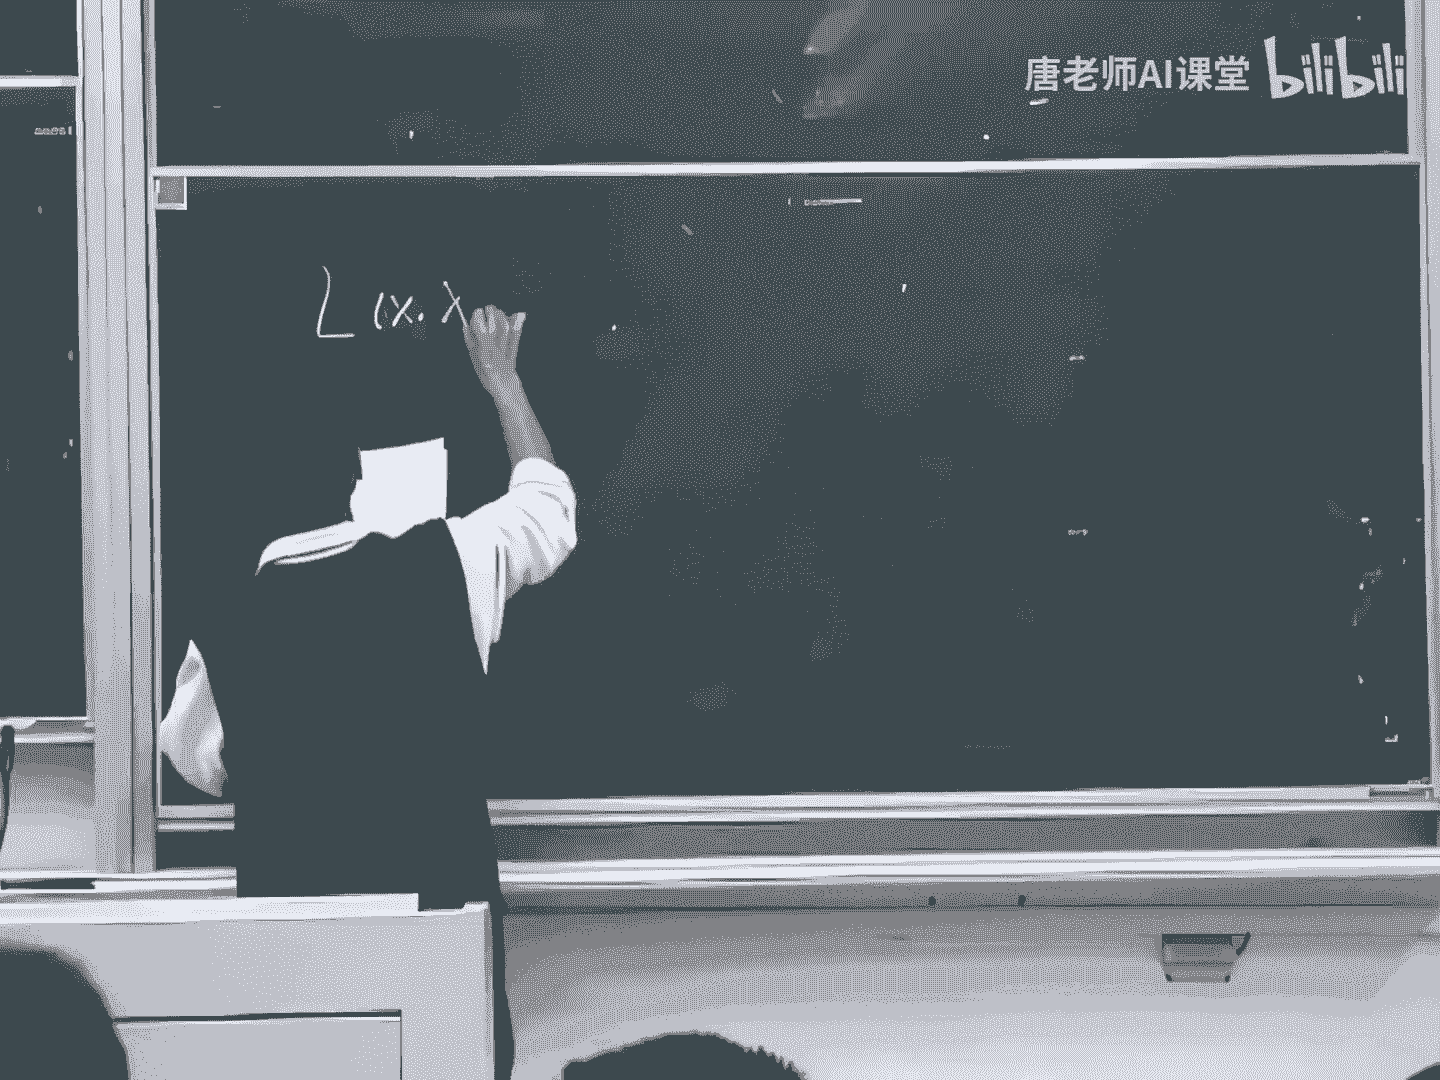 唐老师AI课堂 bilibili
L (x, λ